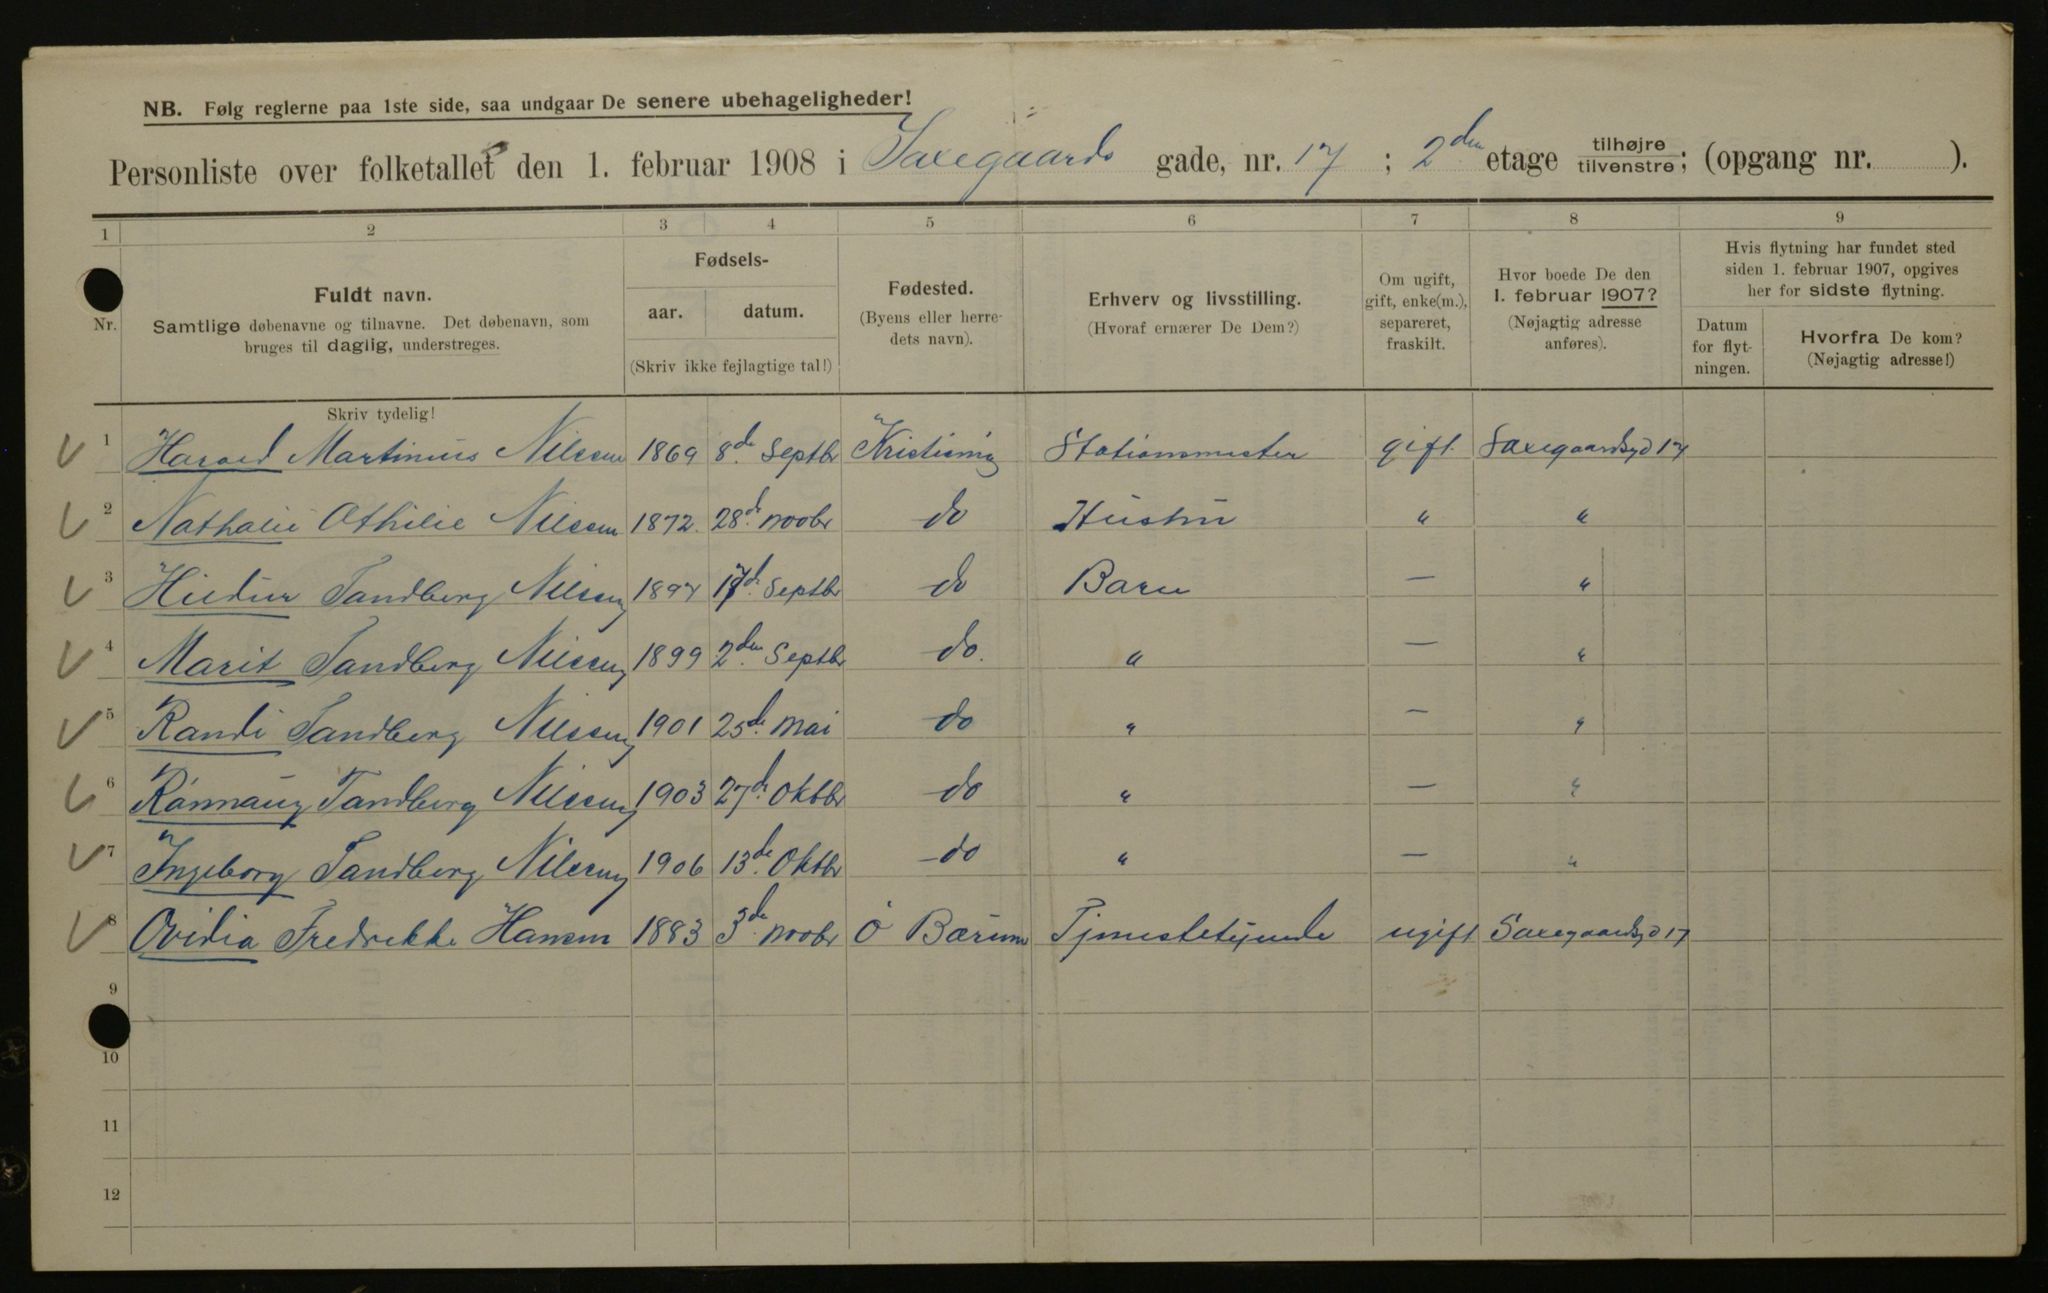 NB. Følg reglerne paa 1ste side, saa undgaar De senere ubehageligheder!
Personliste over folketallet den 1. februar 1908 i Saxegaards gade, nr. 17; 2den etage tilhøjre tilvenstre; (opgang nr. ).
1 2 3 4 5 6 7 8 9
Nr.
Fuldt navn.
Samtlige døbenavne og tilnavne. Det døbenavn, som
bruges til daglig, understreges.
Skriv tydelig!
Fødsels-
aar. datum.
(Skriv ikke fejlagtige tal!)
Fødested.
(Byens eller herre-
dets navn).
Erhverv og livsstilling.
(Hvoraf ernærer De Dem?)
Om ugift,
gift, enke(m.),
separeret,
fraskilt.
Hvor boede De den
1. februar 1907?
(Nøjagtig adresse
anføres).
Hvis flytning har fundet sted
siden 1. februar 1907, opgives
her for sidste flytning.
Datum
for flyt-
ningen.
Hvorfra De kom?
(Nøjagtig adresse!)
1 Harald Martinius Nilssen 1869 8de Septbr Kristiania Stationsmester gift. Saxegaardsgd 17
2 Nathalie Othilie Nilssen 1872. 28de novbr do Hustru " "
3 Hildur Tandberg Nilssen 1897 17de Septbr do Barn — "
4 Marit Tandberg Nilssen 1899 2den Septbr do. " — "
5 Randi Tandberg Nilssen 1901 25de Mai do " — "
6 Rannaug Tandberg Nilssen 1903 27de Oktbr do " — "
7 Ingeborg Tandberg Nilssen 1906 13de Oktbr do " — "
8 Ovidia Fredrikke Hansen 1883 3de novbr Ö Bærum Tjenestetjende ugift Saxegaardsgd 17
9
10
11
12